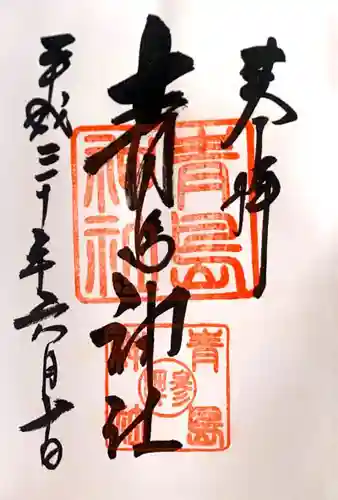 奉拝
青島神社
平成三十年六月十日
青島
神社
青島
神社